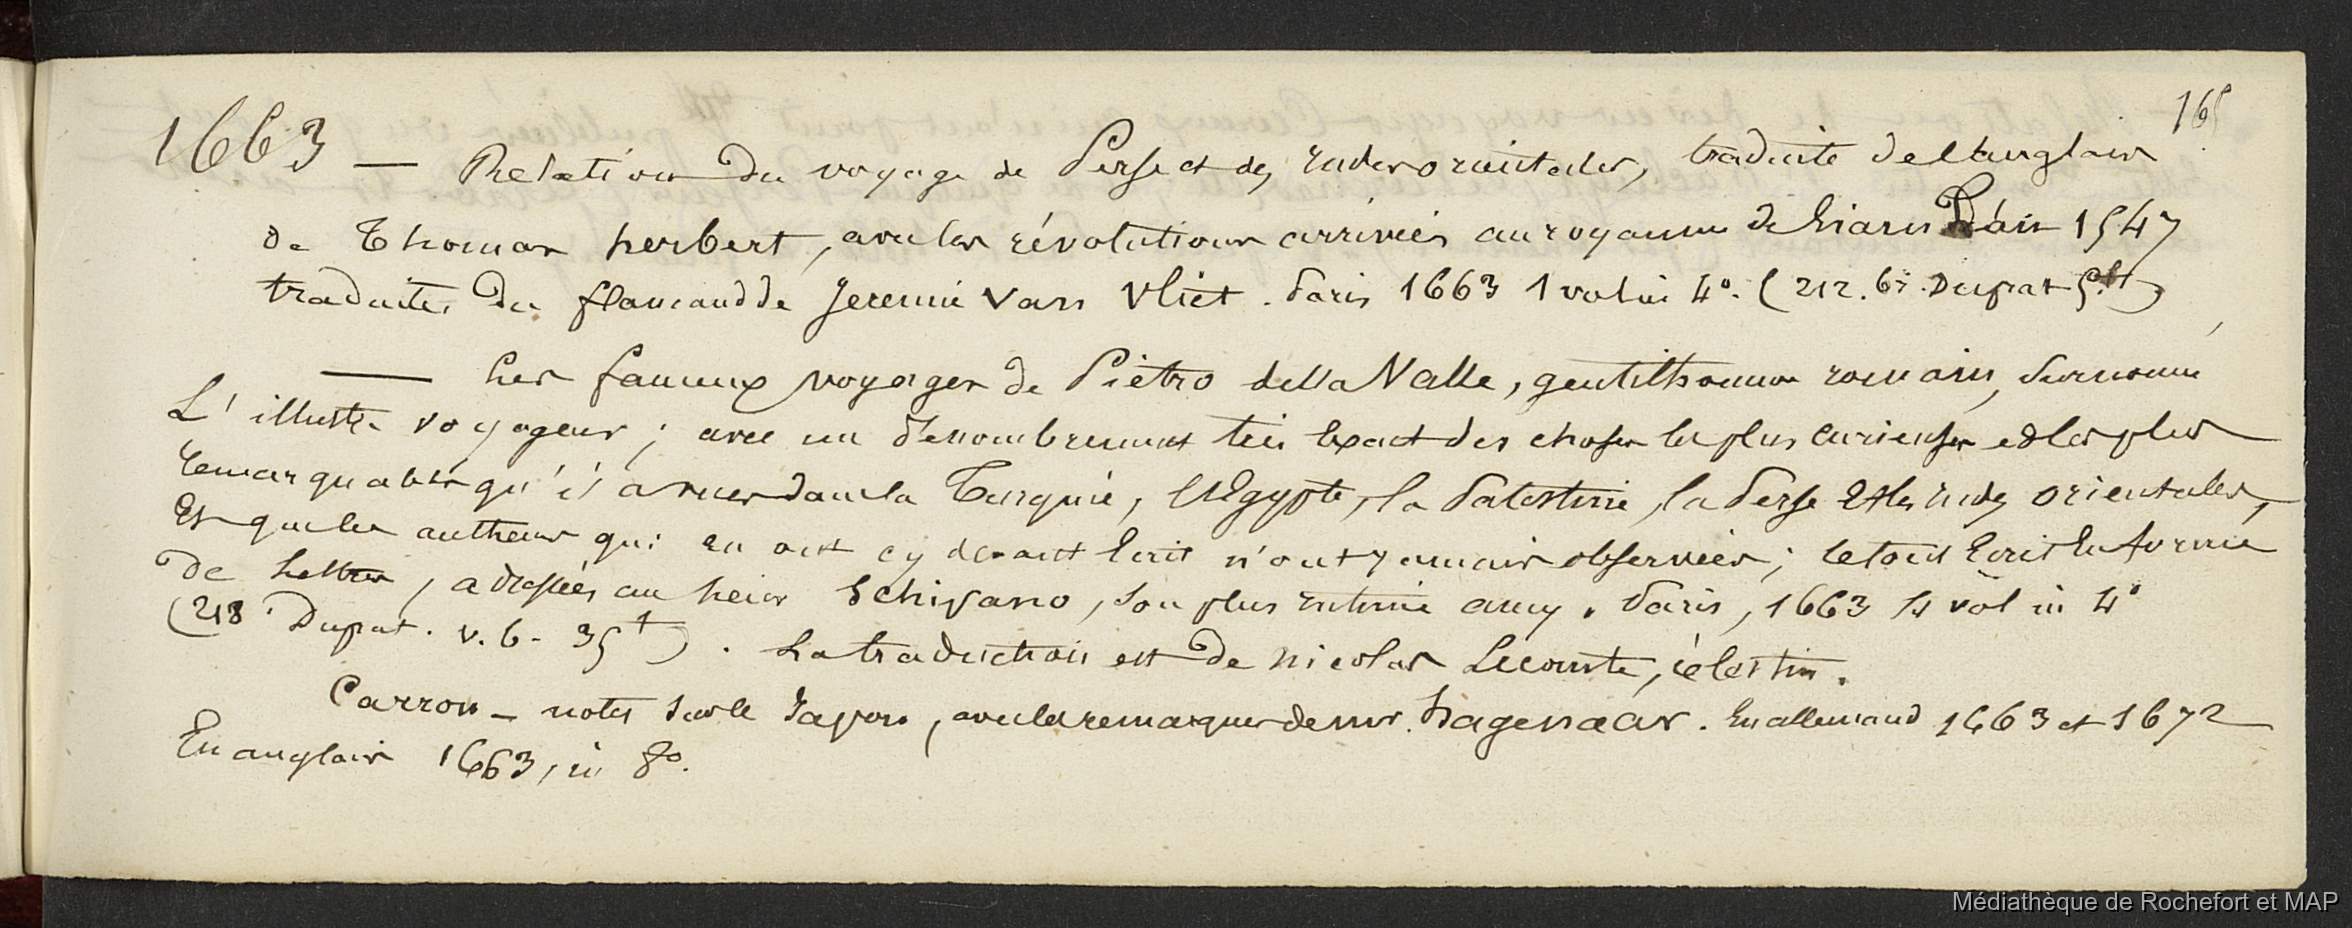 165
1663 — Relation du voyage de Perse et des Indes orientales, traduite de l'anglais
de Thomas herbert, avec les révolutions arrivées au royaume de Siam l'an 1547
traduites du flamand de Jeremie Van Vliet. Paris 1663 1 vol in 4°. (212. bis. Duprat 5f)
— Les fameux voyages de Pietro della Valle, gentilhomme romain, surnommé
L'illustre voyageur; avec un dénombrement très exact des choses les plus curieuses et les plus
remarquables qu'il a vues dans la Turquie, l'Egypte, la Palestine, la Perse et les Indes orientales,
Et que les autheurs qui en ont cy devant Ecrit n'ont jamais observées; le tout Ecrit En forme
de Lettres, adressées au sieur Schipano, son plus intime amy. Paris, 1663 4 vol in 4°
(213 Duprat. v. 6 - 35f). La traduction est de nicolas Lecomte, célestin.
Carron — notes sur le Japon, avec les remarques de mr. hagenaar. En allemand 1663 et 1672
En anglais 1663, in 8°.
Médiathèque de Rochefort et MAP